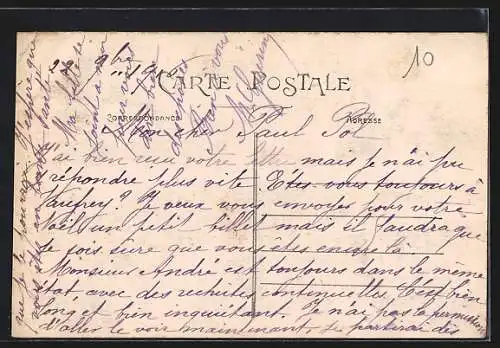 10
CARTE POSTALE
CORRESPONDANCE
ADRESSE
Mon cher Paul Pol
J'ai bien reçu votre lettre mais je n'ai pu
répondre plus vite Êtes-vous toujours à
Vaufrey? Je veux vous envoyer pour votre
Noël un petit billet mais il faudra que
je sois sûre que vous êtes encore là.
Monsieur André est toujours dans le même
état avec des rechutes continuelles. C'est bien
long et bien inquiétant. Je n'ai pas la permission
d'aller le voir maintenant. Je partirai dès
que je le pourrai. J'espère que
vous êtes en bonne santé.
Ma
pour vous